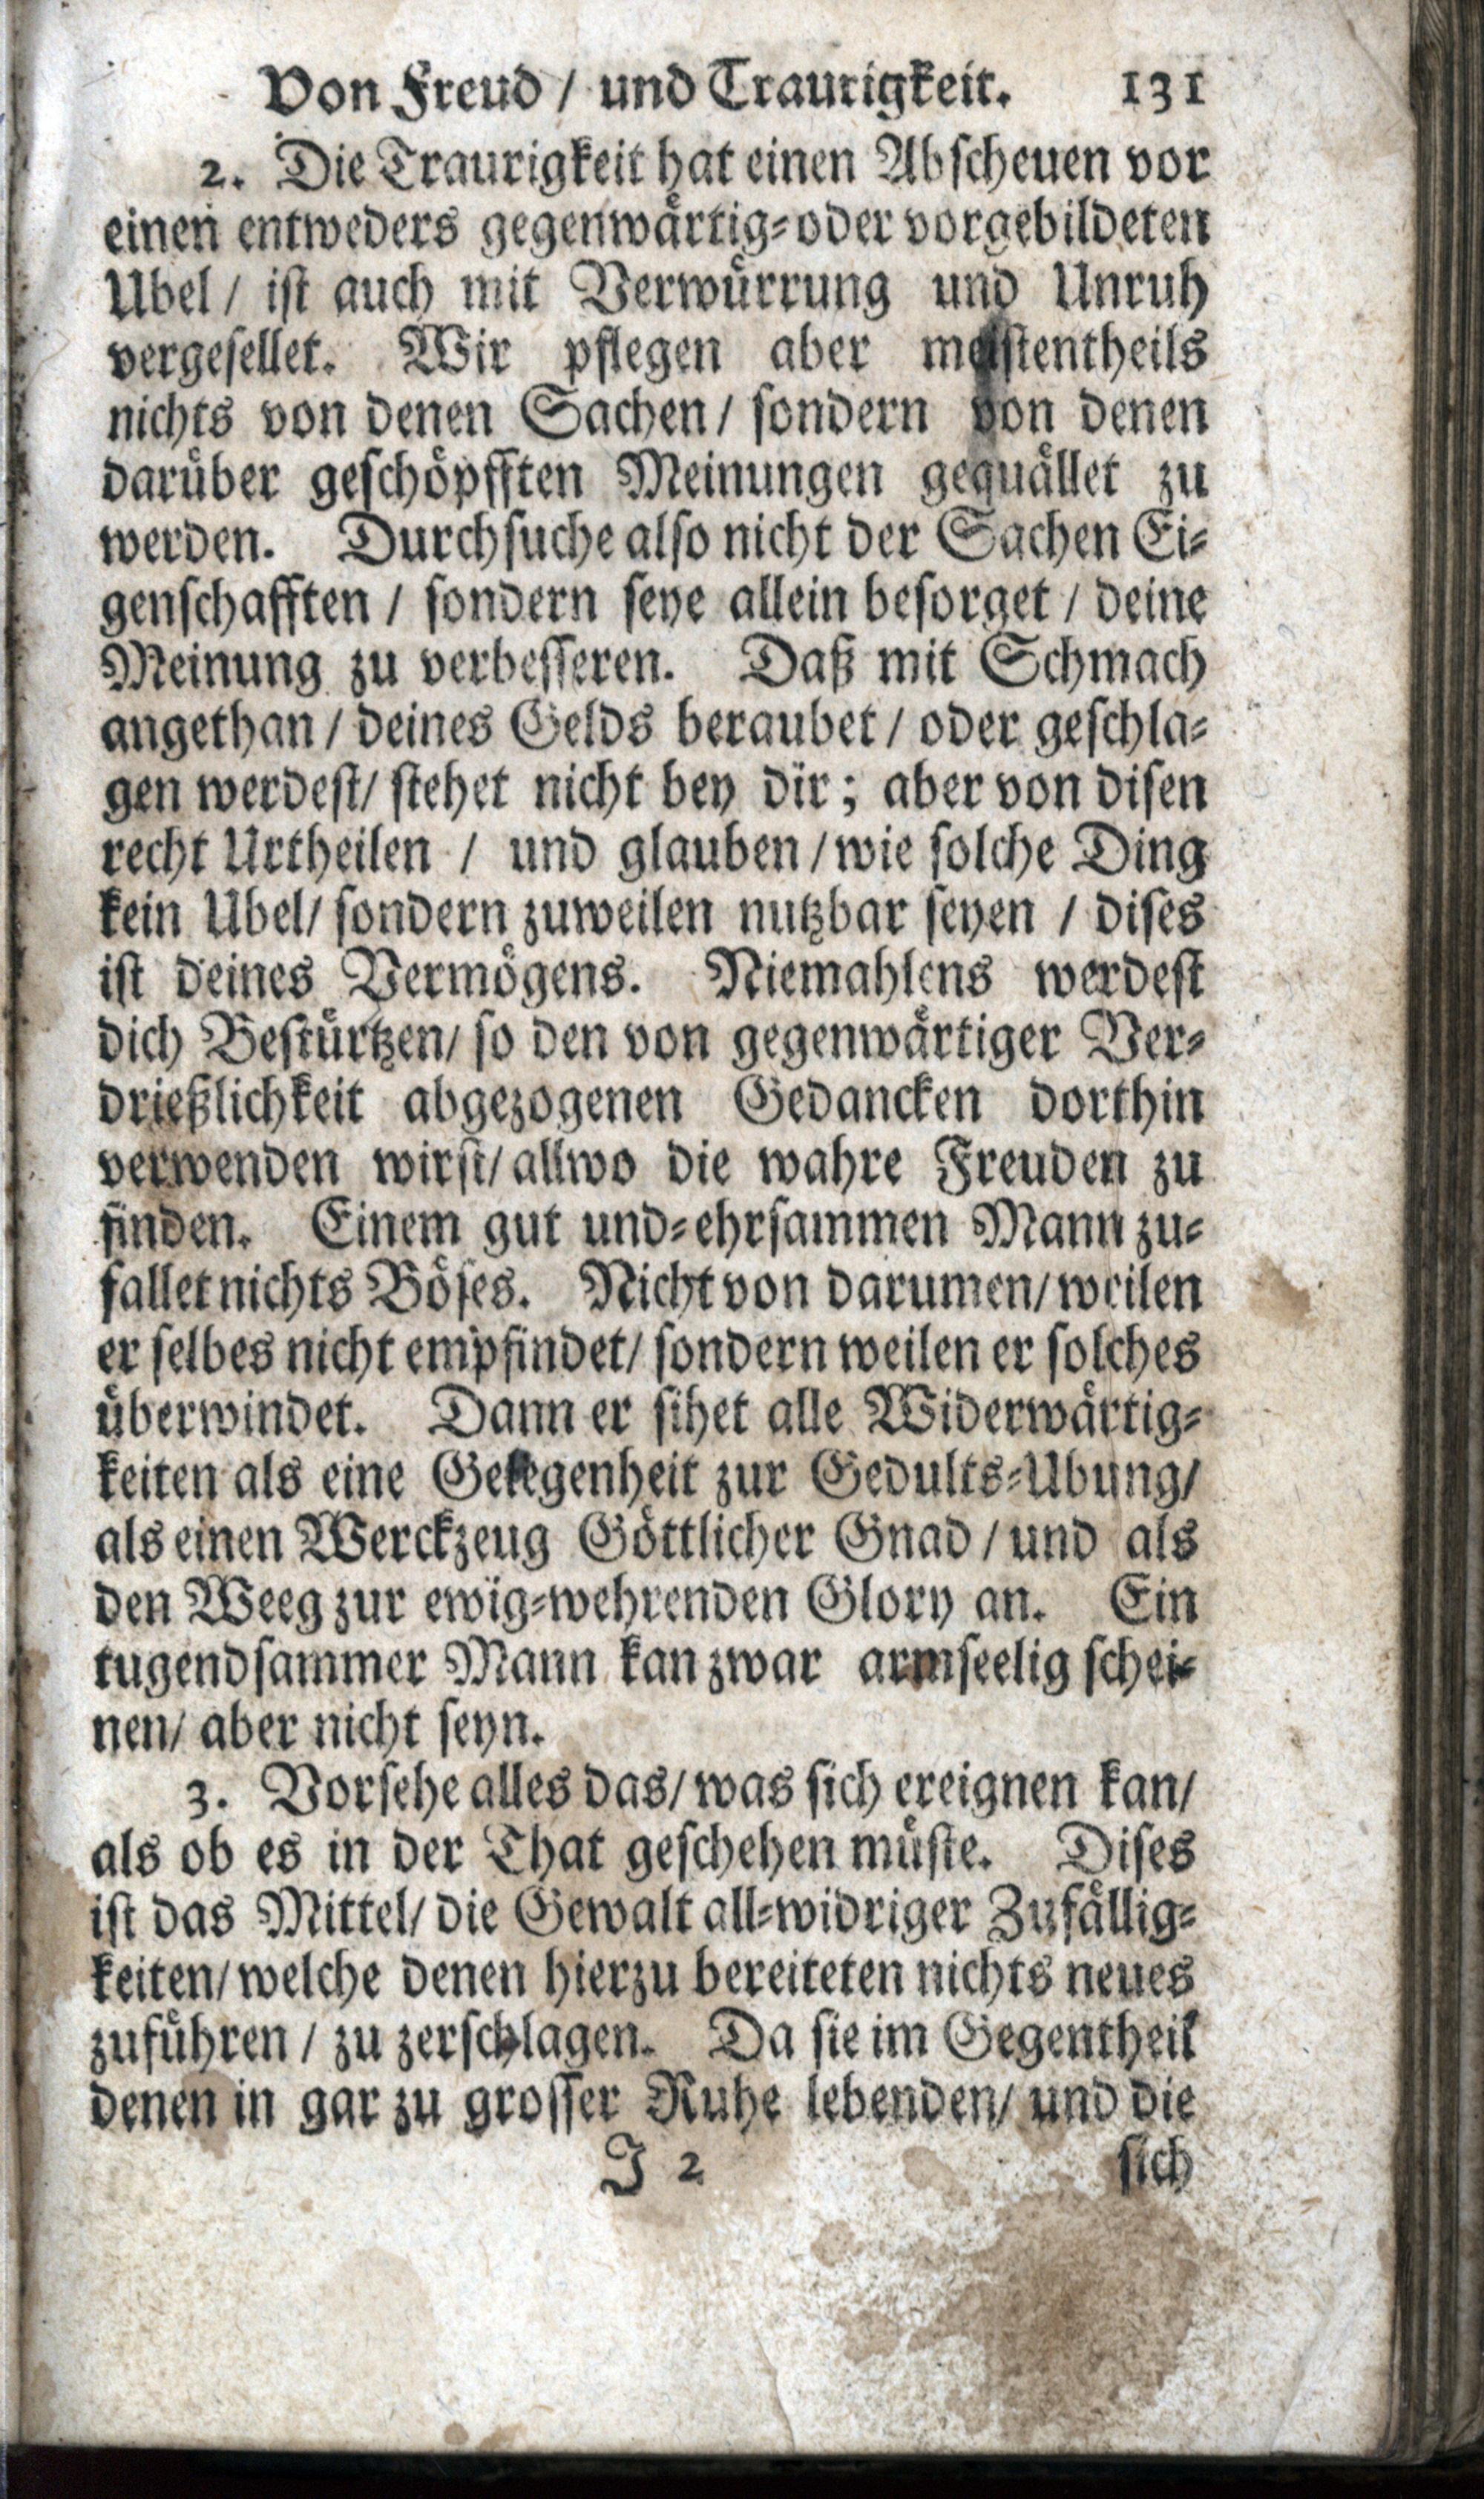 Von Freud / und Traurigkeit. 131
2. Die Traurigkeit hat einen Abscheuen vor
einen entweders gegenwärtig-oder vorgebildeten
Ubel / ist auch mit Verwürrung und Unruh
vergesellet. Wir pflegen aber meistentheils
nichts von denen Sachen / sondern von denen
darüber geschöpfften Meinungen gequället zu
werden. Durchsuche also nicht der Sachen Ei-
genschafften / sondern seye allein besorget / deine
Meinung zu verbesseren. Daß mit Schmach
angethan / deines Gelds beraubet / oder geschla-
gen werdest/ stehet nicht bey dir; aber von disen
recht Urtheilen / und glauben / wie solche Ding
kein Ubel/ sondern zuweilen nutzbar seyen / dises
ist deines Vermögens. Niemahlens werdest
dich Bestürtzen/ so den von gegenwärtiger Ver-
drießlichkeit abgezogenen Gedancken dorthin
verwenden wirst/ allwo die wahre Freuden zu
finden. Einem gut und-ehrsammen Mann zu-
fallet nichts Böses. Nicht von darumen/ weilen
er selbes nicht empfindet/ sondern weilen er solches
überwindet. Dann er sihet alle Widerwärtig-
keiten als eine Gelegenheit zur Gedults-Ubung/
als einen Werckzeug Göttlicher Gnad / und als
den Weeg zur ewig-wehrenden Glory an. Ein
tugendsammer Mann kan zwar armseelig schei-
nen/ aber nicht seyn.
3. Vorsehe alles das/ was sich ereignen kan/
als ob es in der That geschehen müste. Dises
ist das Mittel/ die Gewalt all-widriger Zufällig-
keiten/ welche denen hierzu bereiteten nichts neues
zuführen / zu zerschlagen. Da sie im Gegentheil
denen in gar zu grosser Ruhe lebenden/ und die
J 2 sich